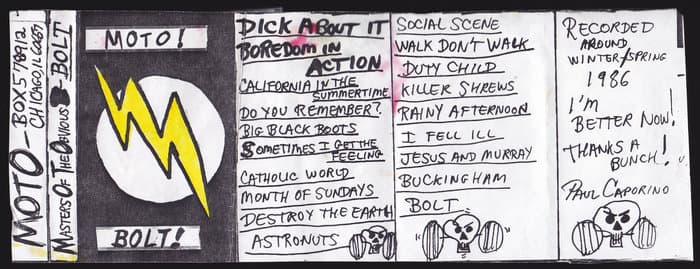 MOTO - BOX 578912
CHICAGO, IL 60657
MASTERS OF THE DEVIOUS - BOLT
MOTO!
BOLT!
DICK ABOUT IT
BOREDOM IN
ACTION
CALIFORNIA IN THE
SUMMERTIME
DO YOU REMEMBER?
BIG BLACK BOOTS
SOMETIMES I GET THE
FEELING
CATHOLIC WORLD
MONTH OF SUNDAYS
DESTROY THE EARTH
ASTRONUTS
SOCIAL SCENE
WALK DON'T WALK
DUTY CHILD
KILLER SHREWS
RAINY AFTERNOON
I FELL ILL
JESUS AND MURRAY
BUCKINGHAM
BOLT
RECORDED
AROUND
WINTER/SPRING
1986
I'M
BETTER NOW!
THANKS A
BUNCH!
PAUL CAPORINO